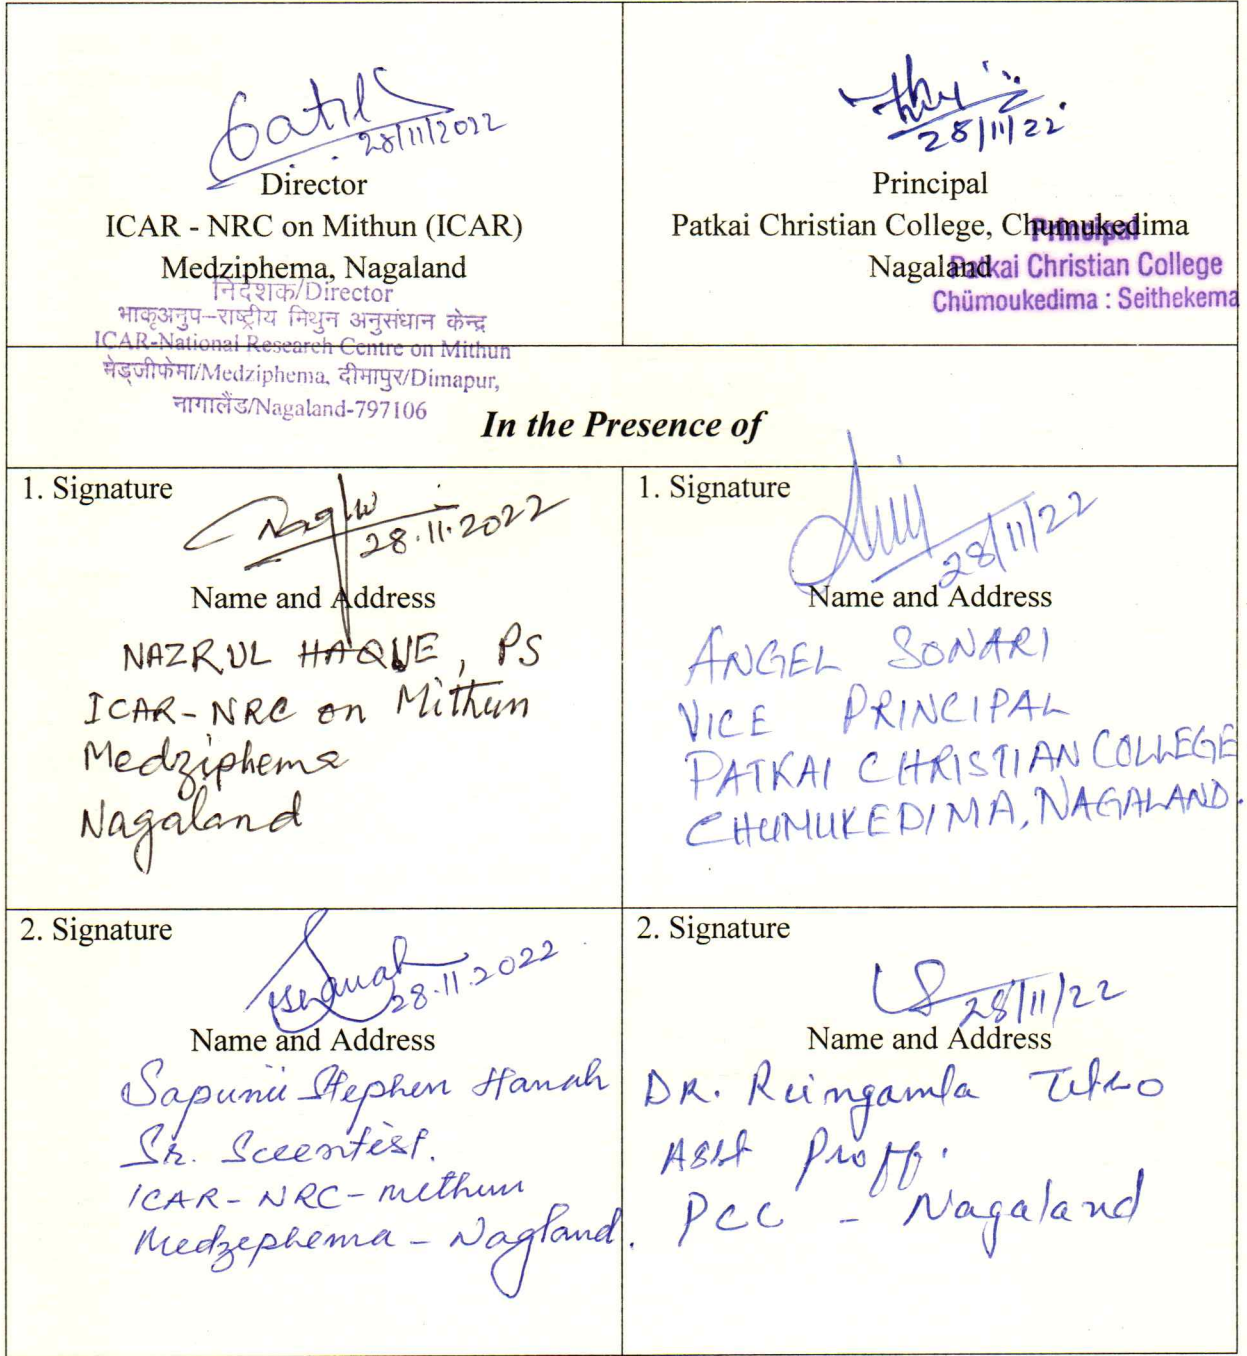 28/11/2022
Director
ICAR - NRC on Mithun (ICAR)
Medziphema, Nagaland
निदेशक/Director
भाकृअनुप–राष्ट्रीय मिथुन अनुसंधान केन्द्र
ICAR-National Research Centre on Mithun
मेड्जीफेमा/Medziphema, दीमापुर/Dimapur,
नागालैंड/Nagaland-797106
28/11/22
Principal
Patkai Christian College, Chumukedima
Nagaland
Principal
Patkai Christian College
Chümoukedima : Seithekema
In the Presence of
1. Signature
28.11.2022
Name and Address
NAZRUL HAQUE, PS
ICAR-NRC on Mithun
Medziphema
Nagaland
1. Signature
28/11/22
Name and Address
ANGEL SONARI
VICE PRINCIPAL
PATKAI CHRISTIAN COLLEGE
CHUMUKEDIMA, NAGALAND.
2. Signature
28.11.2022
Name and Address
Sapunii Stephen Hanah
Sr. Scientist.
ICAR-NRC-Mithun
Medziphema - Nagland.
2. Signature
28/11/22
Name and Address
DR. Reingamla
Asst Proff.
PCC - Nagaland